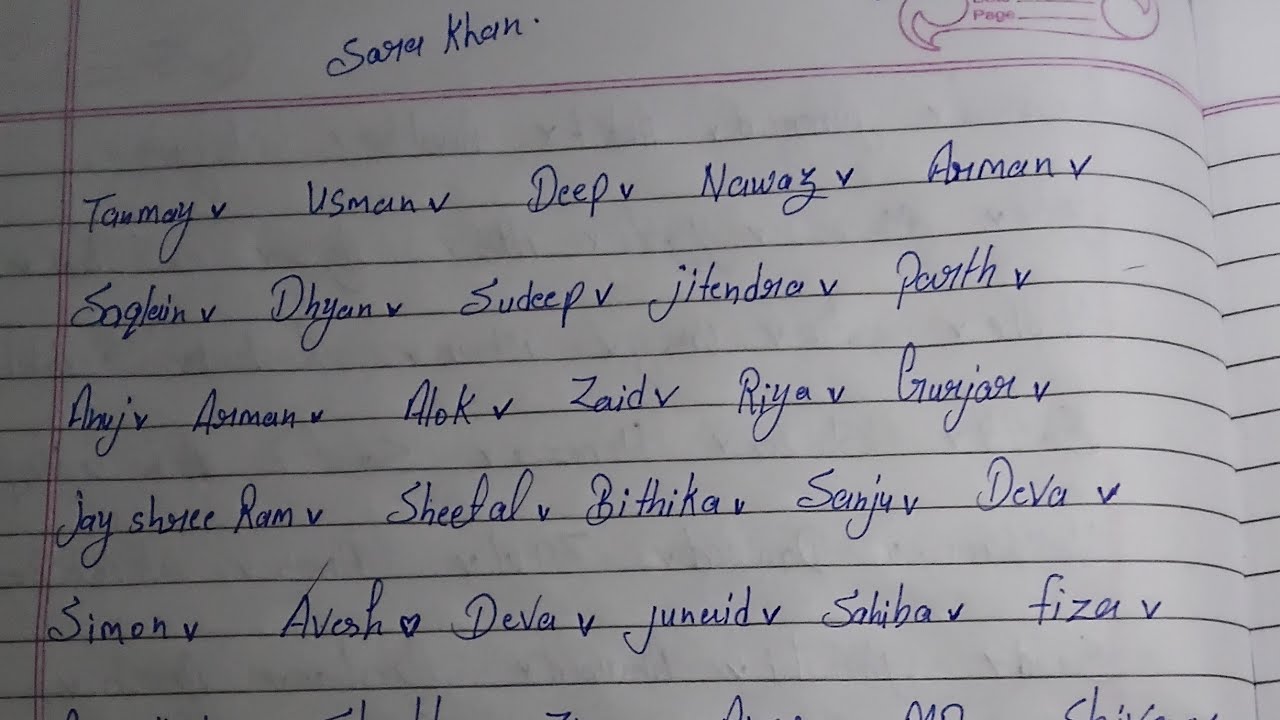 Page
Sara Khan.
Tanmay v Usman v Deep v Nawaz v Arman v
Saqlain v Dhyan v Sudeep v jitendra v Parth v
Anuj v Arman v Alok v Zaid v Riya v Gurjar v
Jay shree Ram v Sheetal v Bithika v Sanju v Deva v
Simon v Avesh ♡ Deva v junaid v Sahiba v fiza v